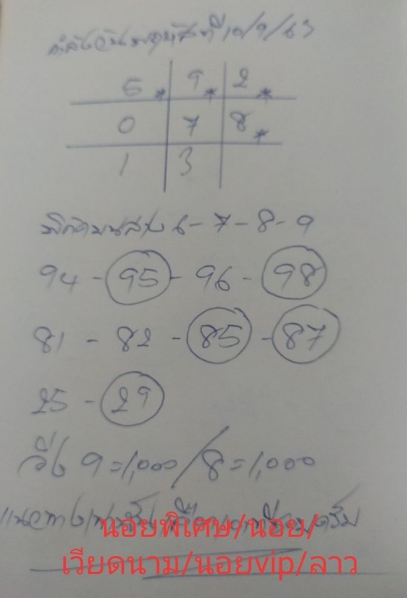 กำลังวันพฤหัสที่ 10/9/63
5* 9* 2*
0 7 8*
1 3
6-7-8-9
94-95-96-98
81-82-85-87
25-29
วิ่ง 9=1,000/8=1,000
นอยพิเศษ/นอย/
เวียดนาม/นอยvip/ลาว